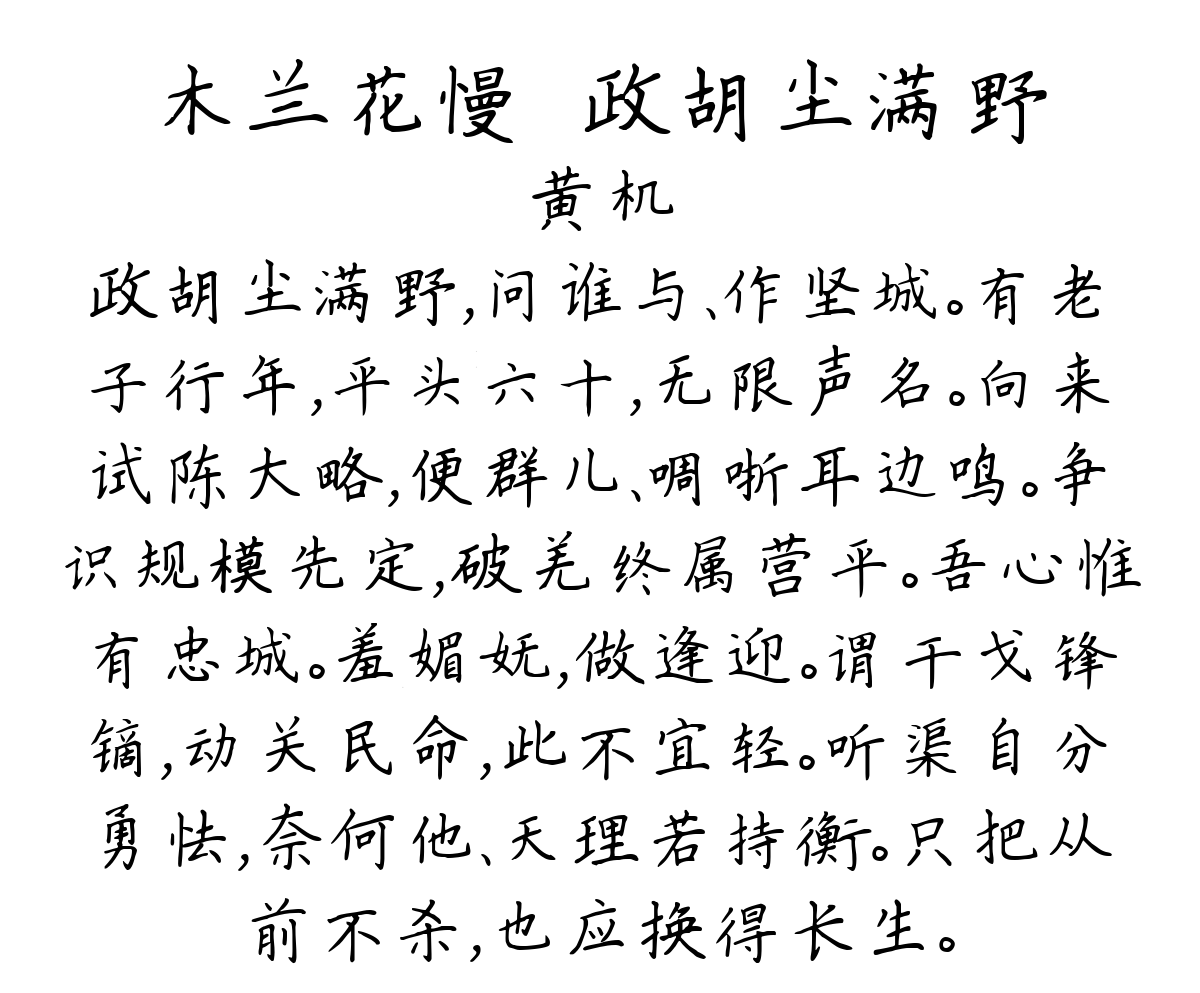 木兰花慢 政胡尘满野
黄机
政胡尘满野,问谁与、作坚城。有老
子行年,平头六十,无限声名。向来
试陈大略,便群儿、啁哳耳边鸣。争
识规模先定,破羌终属营平。吾心惟
有忠城。羞媚妩,做逢迎。谓干戈锋
镝,动关民命,此不宜轻。听渠自分
勇怯,奈何他、天理若持衡。只把从
前不杀,也应换得长生。